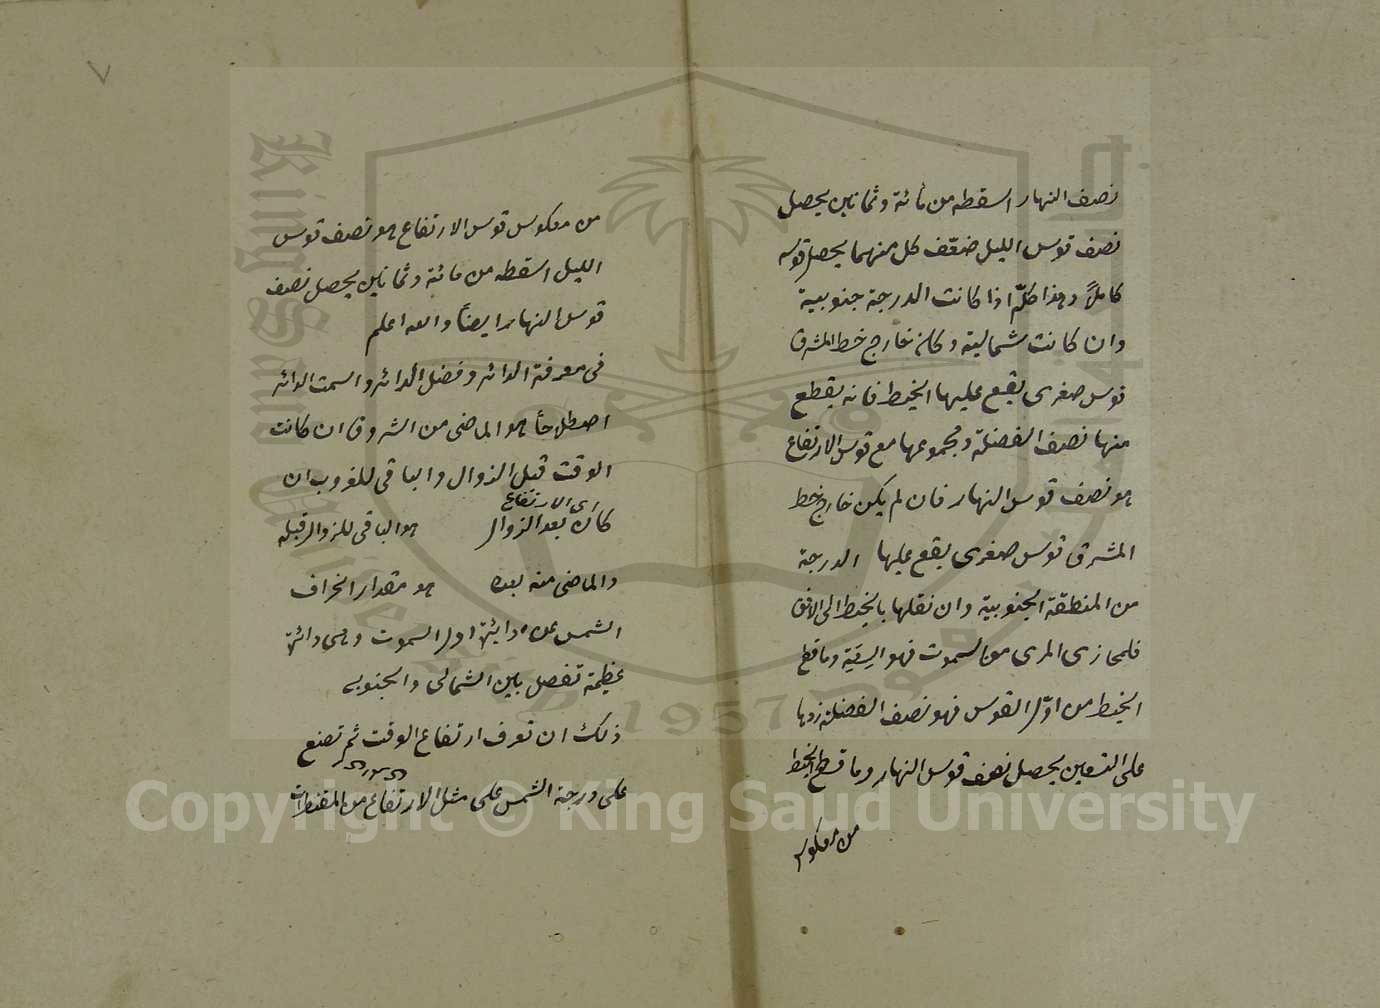 نصف النهار اسقطه من مائة وثمانين يحصل
نصف قوس الليل ضعّف كل منهما يحصل قوسه
كاملاً وهذا كلّه اذا كانت الدرجة جنوبية
وان كانت شمالية وكان خارج خط المشرق
قوس صغرى يقع عليها الخيط فانه يقطع
منها نصف الفضلة ومجموعها مع قوس الارتفاع
هو نصف قوس النهار فان لم يكن خارج خط
المشرق قوس صغرى يقع عليها الدرجة
من المنطقة الجنوبية وان نقلها بالخيط الى الافق
فلمحازى المرى من السموت فهو السعة وما قطع
الخيط من اوّل القوس فهو نصف الفضلة زدها
على التسعين يحصل نصف قوس النهار وما قطع الخيط
من معكوس
٧
من معكوس قوس الارتفاع هو نصف قوس
الليل اسقطه من مائة وثمانين يحصل نصف
قوس النهار ايضاً والله اعلم
فى معرفة الدائر وفضل الدائر والسمت الدائر
اصطلاحاً هو الماضى من الشروق ان كانت
الوقت قبل الزوال والباقى للغروب ان
اى الارتفاع
كان بعد الزوال هو الباقى للزوال قبله
والماضى منه بعده هو مقدار انحراف
الشمس عن دائرة اول السموت وهى دائرة
عظيمة تفصل بين الشمالى والجنوبى
ذلك ان تعرف ارتفاع الوقت ثم تضع
على درجة الشمس على مثل الارتفاع من المقنطرات
Copyright © King Saud University
King Saud University
1957